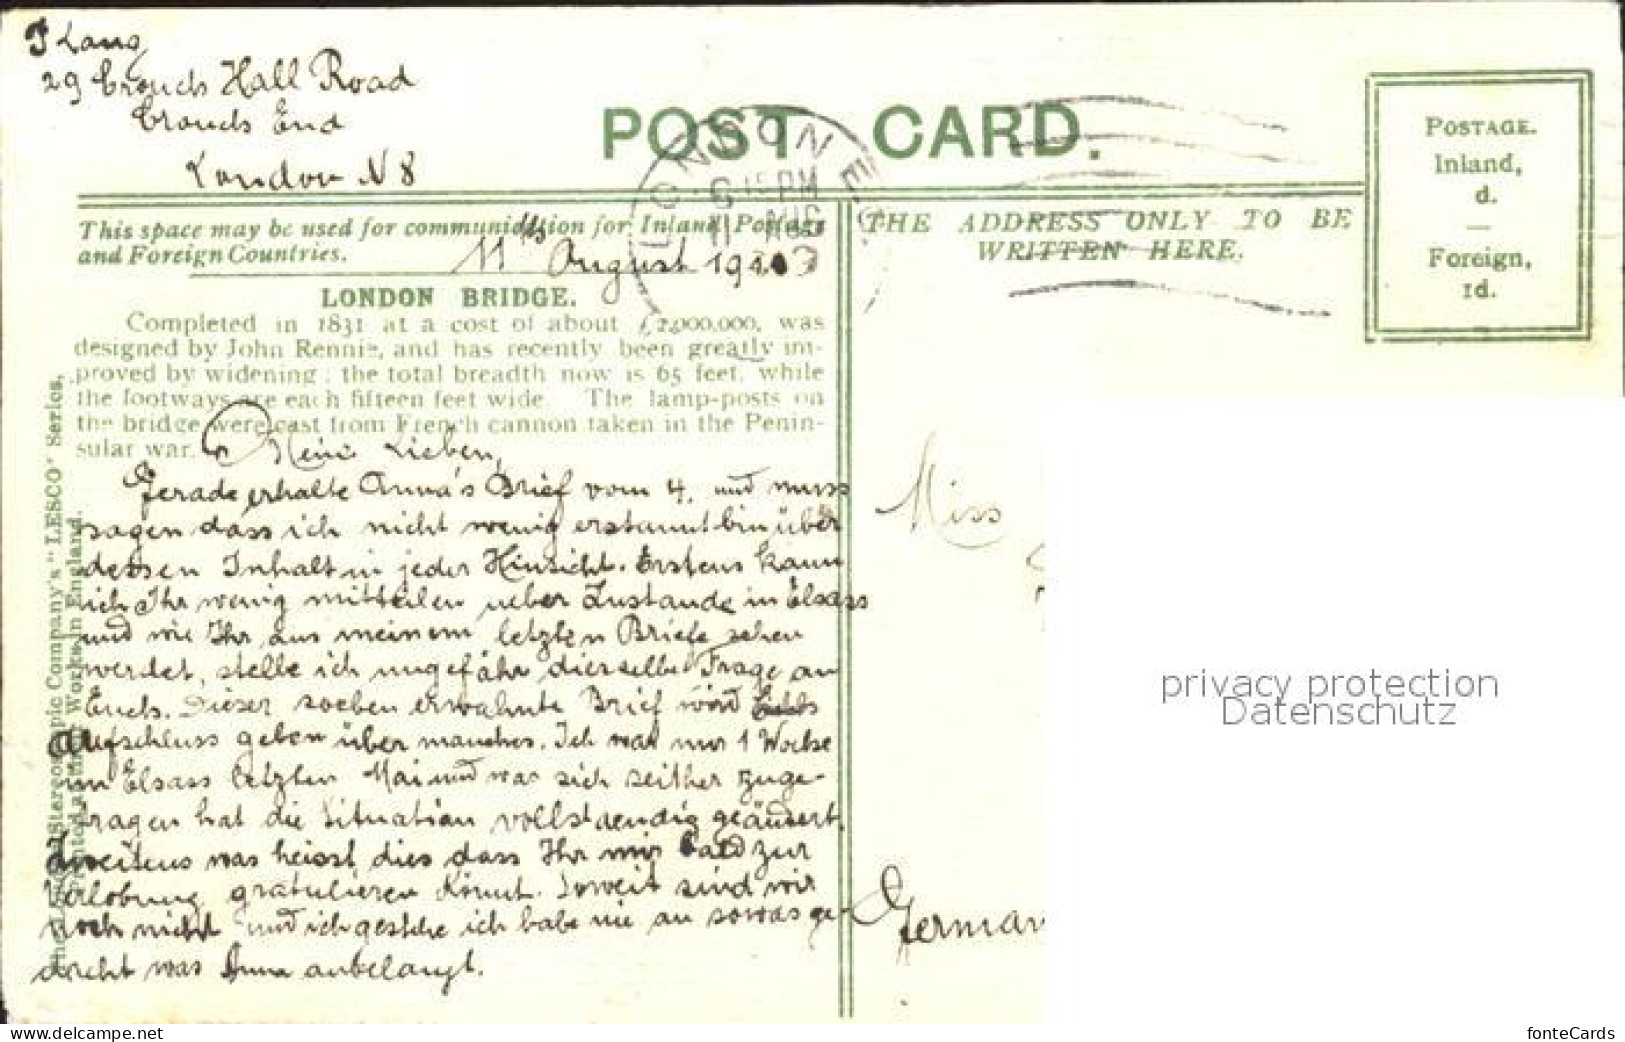 Lang
29 Crouch Hall Road
Crouch End
London N 8
POST CARD.
LONDON E
6 15 PM
11 AUG
This space may be used for communication for Inland Postage
and Foreign Countries.
11th August 19
LONDON BRIDGE.
Completed in 1831 at a cost of about £2,000,000, was
designed by John Rennie, and has recently been greatly im-
proved by widening; the total breadth now is 65 feet, while
the footways are each fifteen feet wide. The lamp-posts on
the bridge were cast from French cannon taken in the Penin-
sular war.
Meine Lieben,
Gerade erhalte Anna's Brief vom 4. und muss
sagen dass ich nicht wenig erstaunt bin über
dessen Inhalt in jeder Hinsicht. Erstens kann
ich Ihr wenig mitteilen ueber Zustande in Elsass
und wie Ihr aus meinem letzten Briefe sehen
werdet, stelle ich ungefähr dieselbe Frage an
Euch. Dieser soeben erwähnte Brief wird
Aufschluss geben über manches. Ich war nur 1 Woche
im Elsass letzten Mai und was sich seither zuge-
tragen hat die Situation vollstaendig geändert.
Zweitens was heisst dies dass Ihr mir bald zur
Verlobung gratulieren könnt. Soweit sind wir
noch nicht und ich gestehe ich habe nie an sowas ge-
dacht was Anna anbelangt.
The London Stereoscopic Company's "LESCO" Series.
Printed at their Works in England.
THE ADDRESS ONLY TO BE
WRITTEN HERE.
POSTAGE.
Inland,
d.
—
Foreign,
1d.
Miss
German
privacy protection
Datenschutz
www.delcampe.net
fonteCards